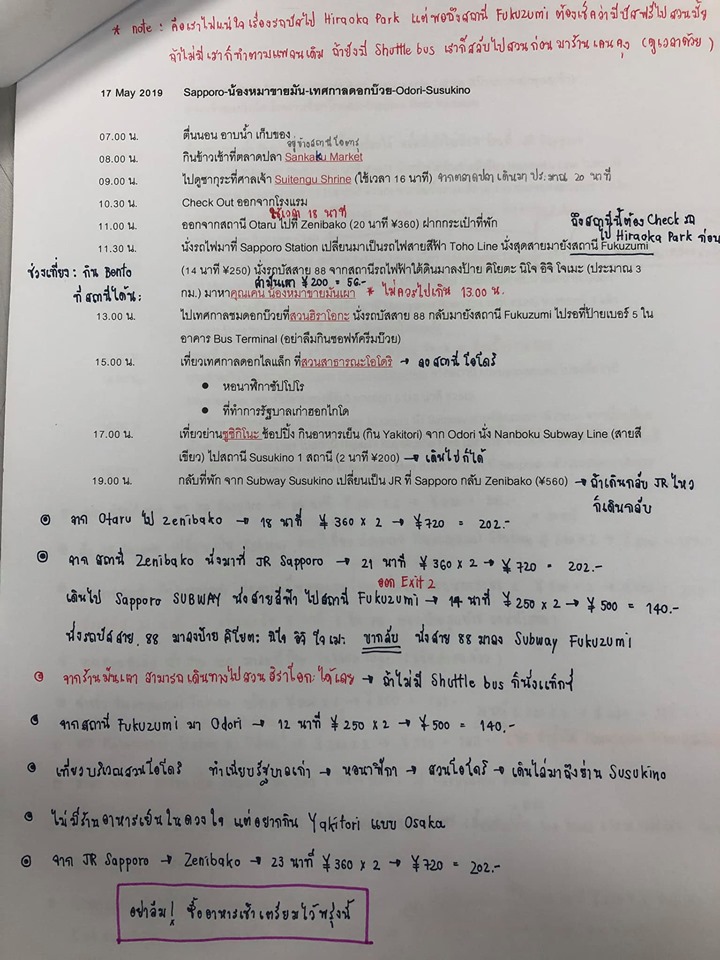 * note : คือเราไม่แน่ใจเรื่องรถบัสไป Hiraoka Park แต่พอถึงสถานี Fukuzumi ต้องเช็คว่ามีบัสฟรีไปสวนมั้ย
ถ้าไม่มีเราก็ทำตามแพลนเดิม ถ้ายังมี Shuttle bus เราก็สลับไปสวนก่อนมาร้านเคนคุง (ดูเวลาด้วย)
17 May 2019 Sapporo-น้องหมาขายมัน-เทศกาลดอกบ๊วย-Odori-Susukino
07.00 น. ตื่นนอน อาบน้ำ เก็บของ
อยู่ข้างสถานีโอตารุ
08.00 น. กินข้าวเช้าที่ตลาดปลา Sankaku Market
09.00 น. ไปดูซากุระที่ศาลเจ้า Suitengu Shrine (ใช้เวลา 16 นาที) จากตลาดปลาเดินมาประมาณ 20 นาที
10.30 น. Check Out ออกจากโรงแรม
ใช้เวลา 18 นาที
11.00 น. ออกจากสถานี Otaru ไปที่ Zenibako (20 นาที ¥360) ฝากกระเป๋าที่พัก
ถึงสถานีนี้ต้อง Check รถ
ไป Hiraoka Park ก่อน
11.30 น. นั่งรถไฟมาที่ Sapporo Station เปลี่ยนมาเป็นรถไฟสายสีฟ้า Toho Line นั่งสุดสายมายังสถานี Fukuzumi
ช่วงเที่ยง : กิน Bento
ที่สถานีได้นะ
(14 นาที ¥250) นั่งรถบัสสาย 88 จากสถานีรถไฟฟ้าใต้ดินมาลงป้าย คิโยตะ นิโจ อิจิ โจเมะ (ประมาณ 3
¥200 = 56.-
กม.) มาหาคุณเคน น้องหมาขายมันเผา * ไม่ควรไปเกิน 13.00 น.
13.00 น. ไปเทศกาลชมดอกบ๊วยที่สวนฮิราโอกะ นั่งรถบัสสาย 88 กลับมายังสถานี Fukuzumi ไปรอที่ป้ายเบอร์ 5 ใน
อาคาร Bus Terminal (อย่าลืมกินซอฟท์ครีมบ๊วย)
15.00 น. เที่ยวเทศกาลดอกไลแล็ก ที่สวนสาธารณะโอโดริ → ลงสถานีโอโดริ
• หอนาฬิกาซัปโปโร
• ที่ทำการรัฐบาลเก่าฮอกไกโด
17.00 น. เที่ยวย่านซูซิกิโนะ ช้อปปิ้ง กินอาหารเย็น (กิน Yakitori) จาก Odori นั่ง Nanboku Subway Line (สายสี
เขียว) ไปสถานี Susukino 1 สถานี (2 นาที ¥200) → เดินไปก็ได้
19.00 น. กลับที่พัก จาก Subway Susukino เปลี่ยนเป็น JR ที่ Sapporo กลับ Zenibako (¥560) → ถ้าเดินกลับ JR ไหว
ก็เดินกลับ
จาก Otaru ไป Zenibako → 18 นาที ¥ 360 x 2 → ¥ 720 = 202.-
จาก สถานี Zenibako นั่งมาที่ JR Sapporo → 21 นาที ¥ 360 x 2 → ¥ 720 = 202.-
ออก Exit 2
เดินไป Sapporo SUBWAY นั่งสายสีฟ้า ไปสถานี Fukuzumi → 14 นาที ¥ 250 x 2 → ¥ 500 = 140.-
นั่งรถบัสสาย 88 มาลงป้าย คิโยตะ นิโจ อิจิ โจเมะ ขากลับ นั่งสาย 88 มาลง Subway Fukuzumi
จากร้านมันเผา สามารถเดินทางไปสวนฮิราโอกะได้เลย → ถ้าไม่มี Shuttle bus ก็นั่งแท็กซี่
จากสถานี Fukuzumi มา Odori → 12 นาที ¥ 250 x 2 → ¥ 500 = 140.-
เที่ยวบริเวณสวนโอโดริ ทำเนียบรัฐบาลเก่า → หอนาฬิกา → สวนโอโดริ → เดินไล่มาถึงย่าน Susukino
ไม่มีร้านอาหารเย็นในดวงใจ แต่อยากกิน Yakitori แบบ Osaka
จาก JR Sapporo → Zenibako → 23 นาที ¥ 360 x 2 → ¥ 720 = 202.-
อย่าลืม! ซื้ออาหารเช้าเตรียมไว้พรุ่งนี้